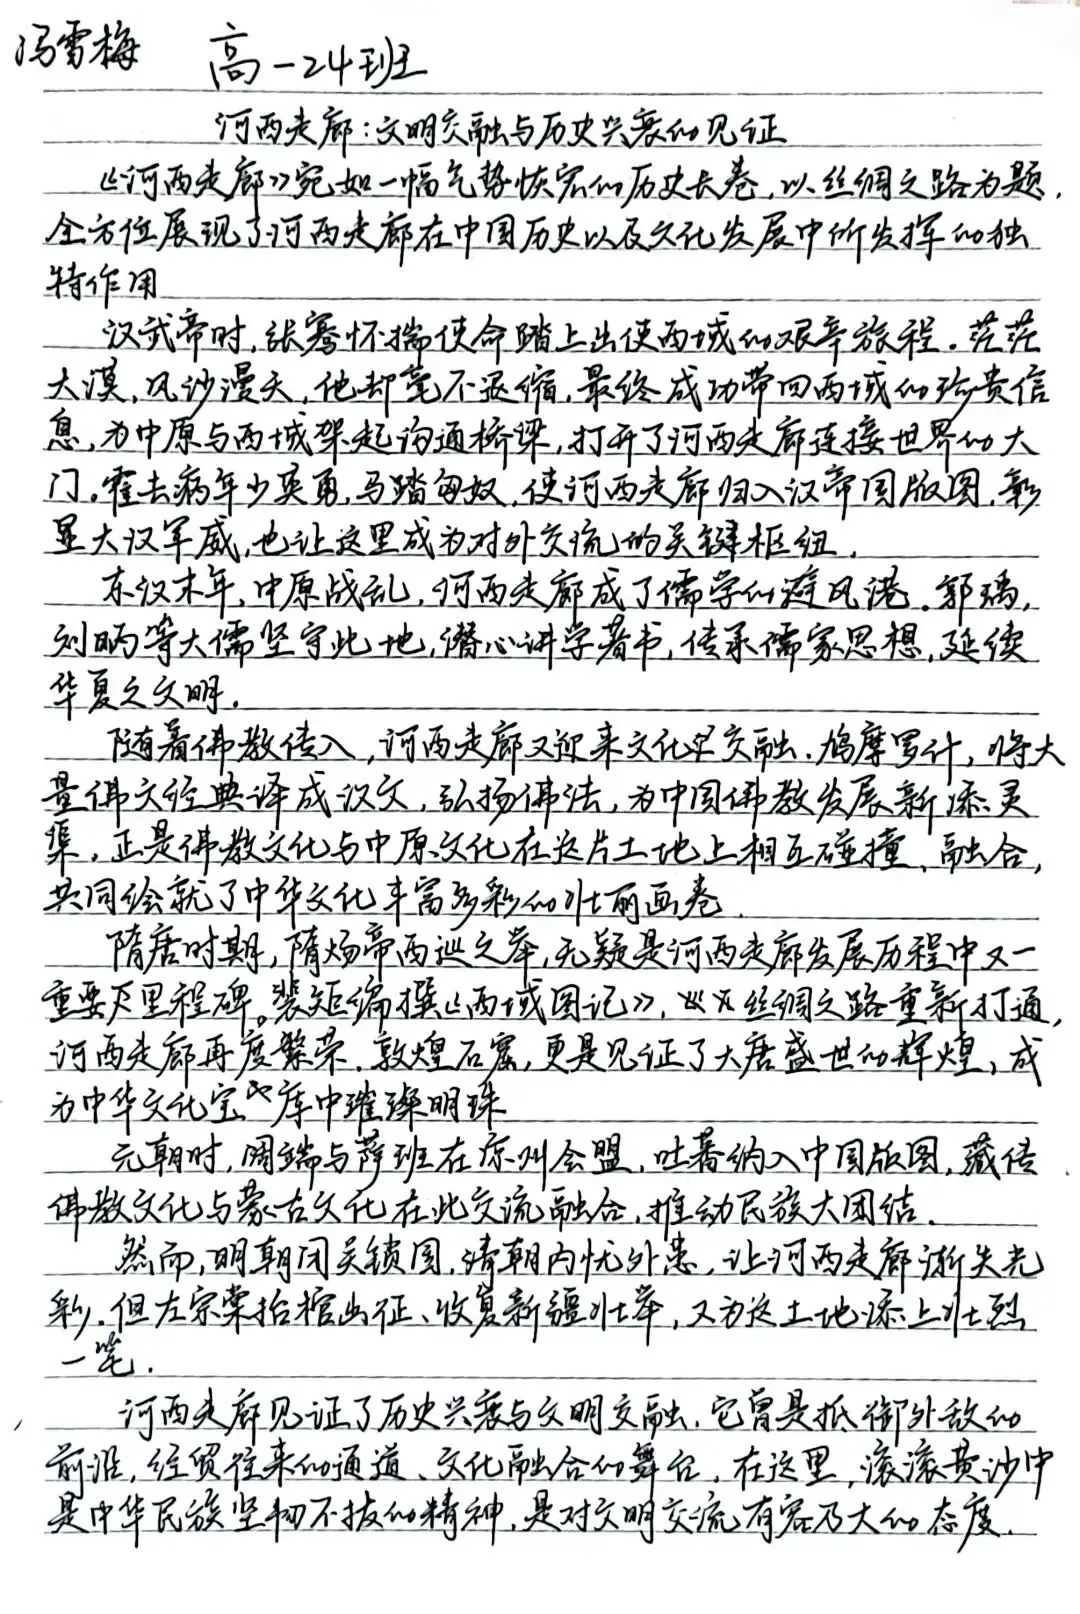 冯雪梅 高一24班
河西走廊:文明交融与历史兴衰的见证
《河西走廊》宛如一幅气势恢宏的历史长卷,以丝绸之路为题,
全方位展现了河西走廊在中国历史以及文化发展中所发挥的独
特作用
汉武帝时,张骞怀揣使命踏上出使西域的艰辛旅程。茫茫
大漠,风沙漫天,他却毫不退缩,最终成功带回西域的珍贵信
息,为中原与西域架起沟通桥梁,打开了河西走廊连接世界的大
门。霍去病年少英勇,马踏匈奴,使河西走廊归入汉帝国版图,彰
显大汉军威,也让这里成为对外交流的关键枢纽.
东汉末年,中原战乱,河西走廊成了儒学的避风港。郭瑀,
刘昞等大儒坚守此地,潜心讲学著书,传承儒家思想,延续
华夏之文明.
随着佛教传入,河西走廊又迎来文化交融.鸠摩罗什,将大
量佛文经典译成汉文,弘扬佛法,为中国佛教发展新添灵
渠,正是佛教文化与中原文化在这片土地上相互碰撞、融合,
共同绘就了中华文化丰富多彩的壮丽画卷.
隋唐时期,隋炀帝西巡之举,无疑是河西走廊发展历程中又一
重要里程碑。裴矩编撰《西域图记》,丝绸之路重新打通,
河西走廊再度繁荣.敦煌石窟,更是见证了大唐盛世的辉煌,成
为中华文化宝库中璀璨明珠
元朝时,阔端与萨班在凉州会盟,吐蕃纳入中国版图,藏传
佛教文化与蒙古文化在此交流融合,推动民族大团结.
然而,明朝闭关锁国,清朝内忧外患,让河西走廊渐失光
彩.但左宗棠抬棺出征、收复新疆壮举,又为这土地添上壮烈
一笔.
河西走廊见证了历史兴衰与文明交融.它曾是抵御外敌的
前沿,经贸往来的通道、文化融合的舞台.在这里,滚滚黄沙中
是中华民族坚韧不拔的精神,是对文明交流有容乃大的态度.